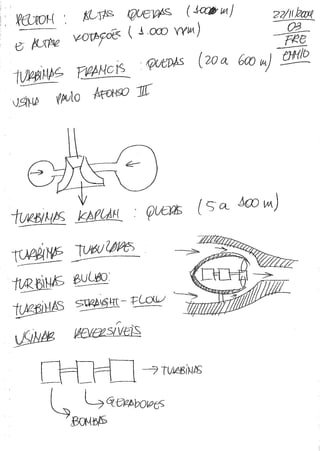 PELTOM : ALTAS QUEDAS (1000 m)
E ALTAS ROTAÇÕES (1.000 rpm)
22/11/2004
03
FRE
ENNIO
TURBINAS FRANCIS : QUEDAS (20 a 600 m)
USINA PAULO AFONSO III
TURBINAS KAPLAN : QUEDAS (5 a 100 m)
TURBINAS TUBULARES
TURBINAS BULBO:
TURBINAS STRAIGHT-FLOW
USINAS REVERSÍVEIS
→ TURBINAS
GERADORES
BOMBAS